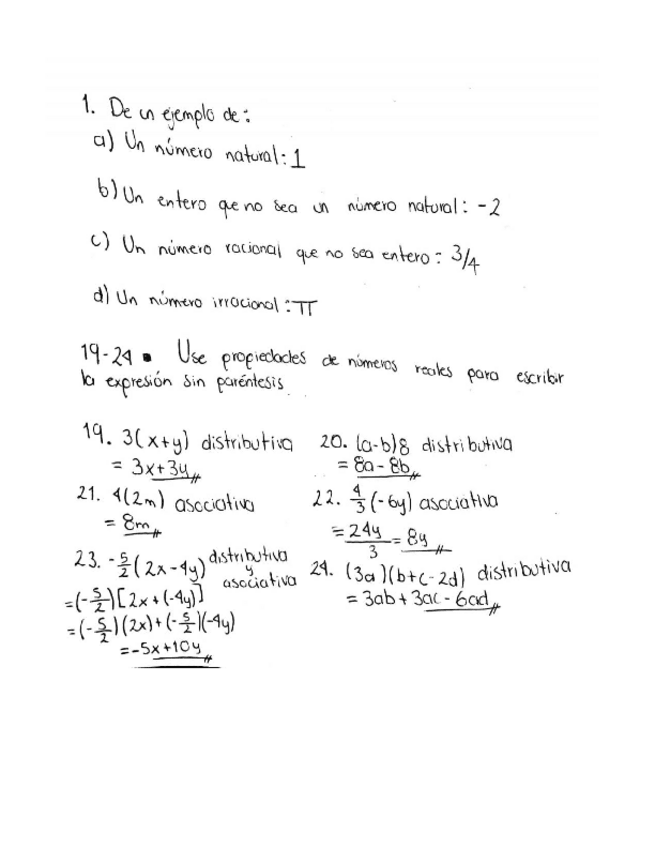 1. De un ejemplo de:
a) Un número natural: 1
b) Un entero que no sea un número natural: -2
c) Un número racional que no sea entero: 3/4
d) Un número irracional: π
19-24 • Use propiedades de números reales para escribir
la expresión sin paréntesis
19. 3(x+y) distributiva
= 3x+3y
20. (a-b)8 distributiva
= 8a-8b
21. 4(2m) asociativa
= 8m
22. 4/3 (-6y) asociativa
= 24y/3 = 8y
23. -5/2 (2x-4y) distributiva y asociativa
=(-5/2)[2x+(-4y)]
=(-5/2)(2x)+(-5/2)(-4y)
=-5x+10y
24. (3a)(b+c-2d) distributiva
= 3ab+3ac-6ad